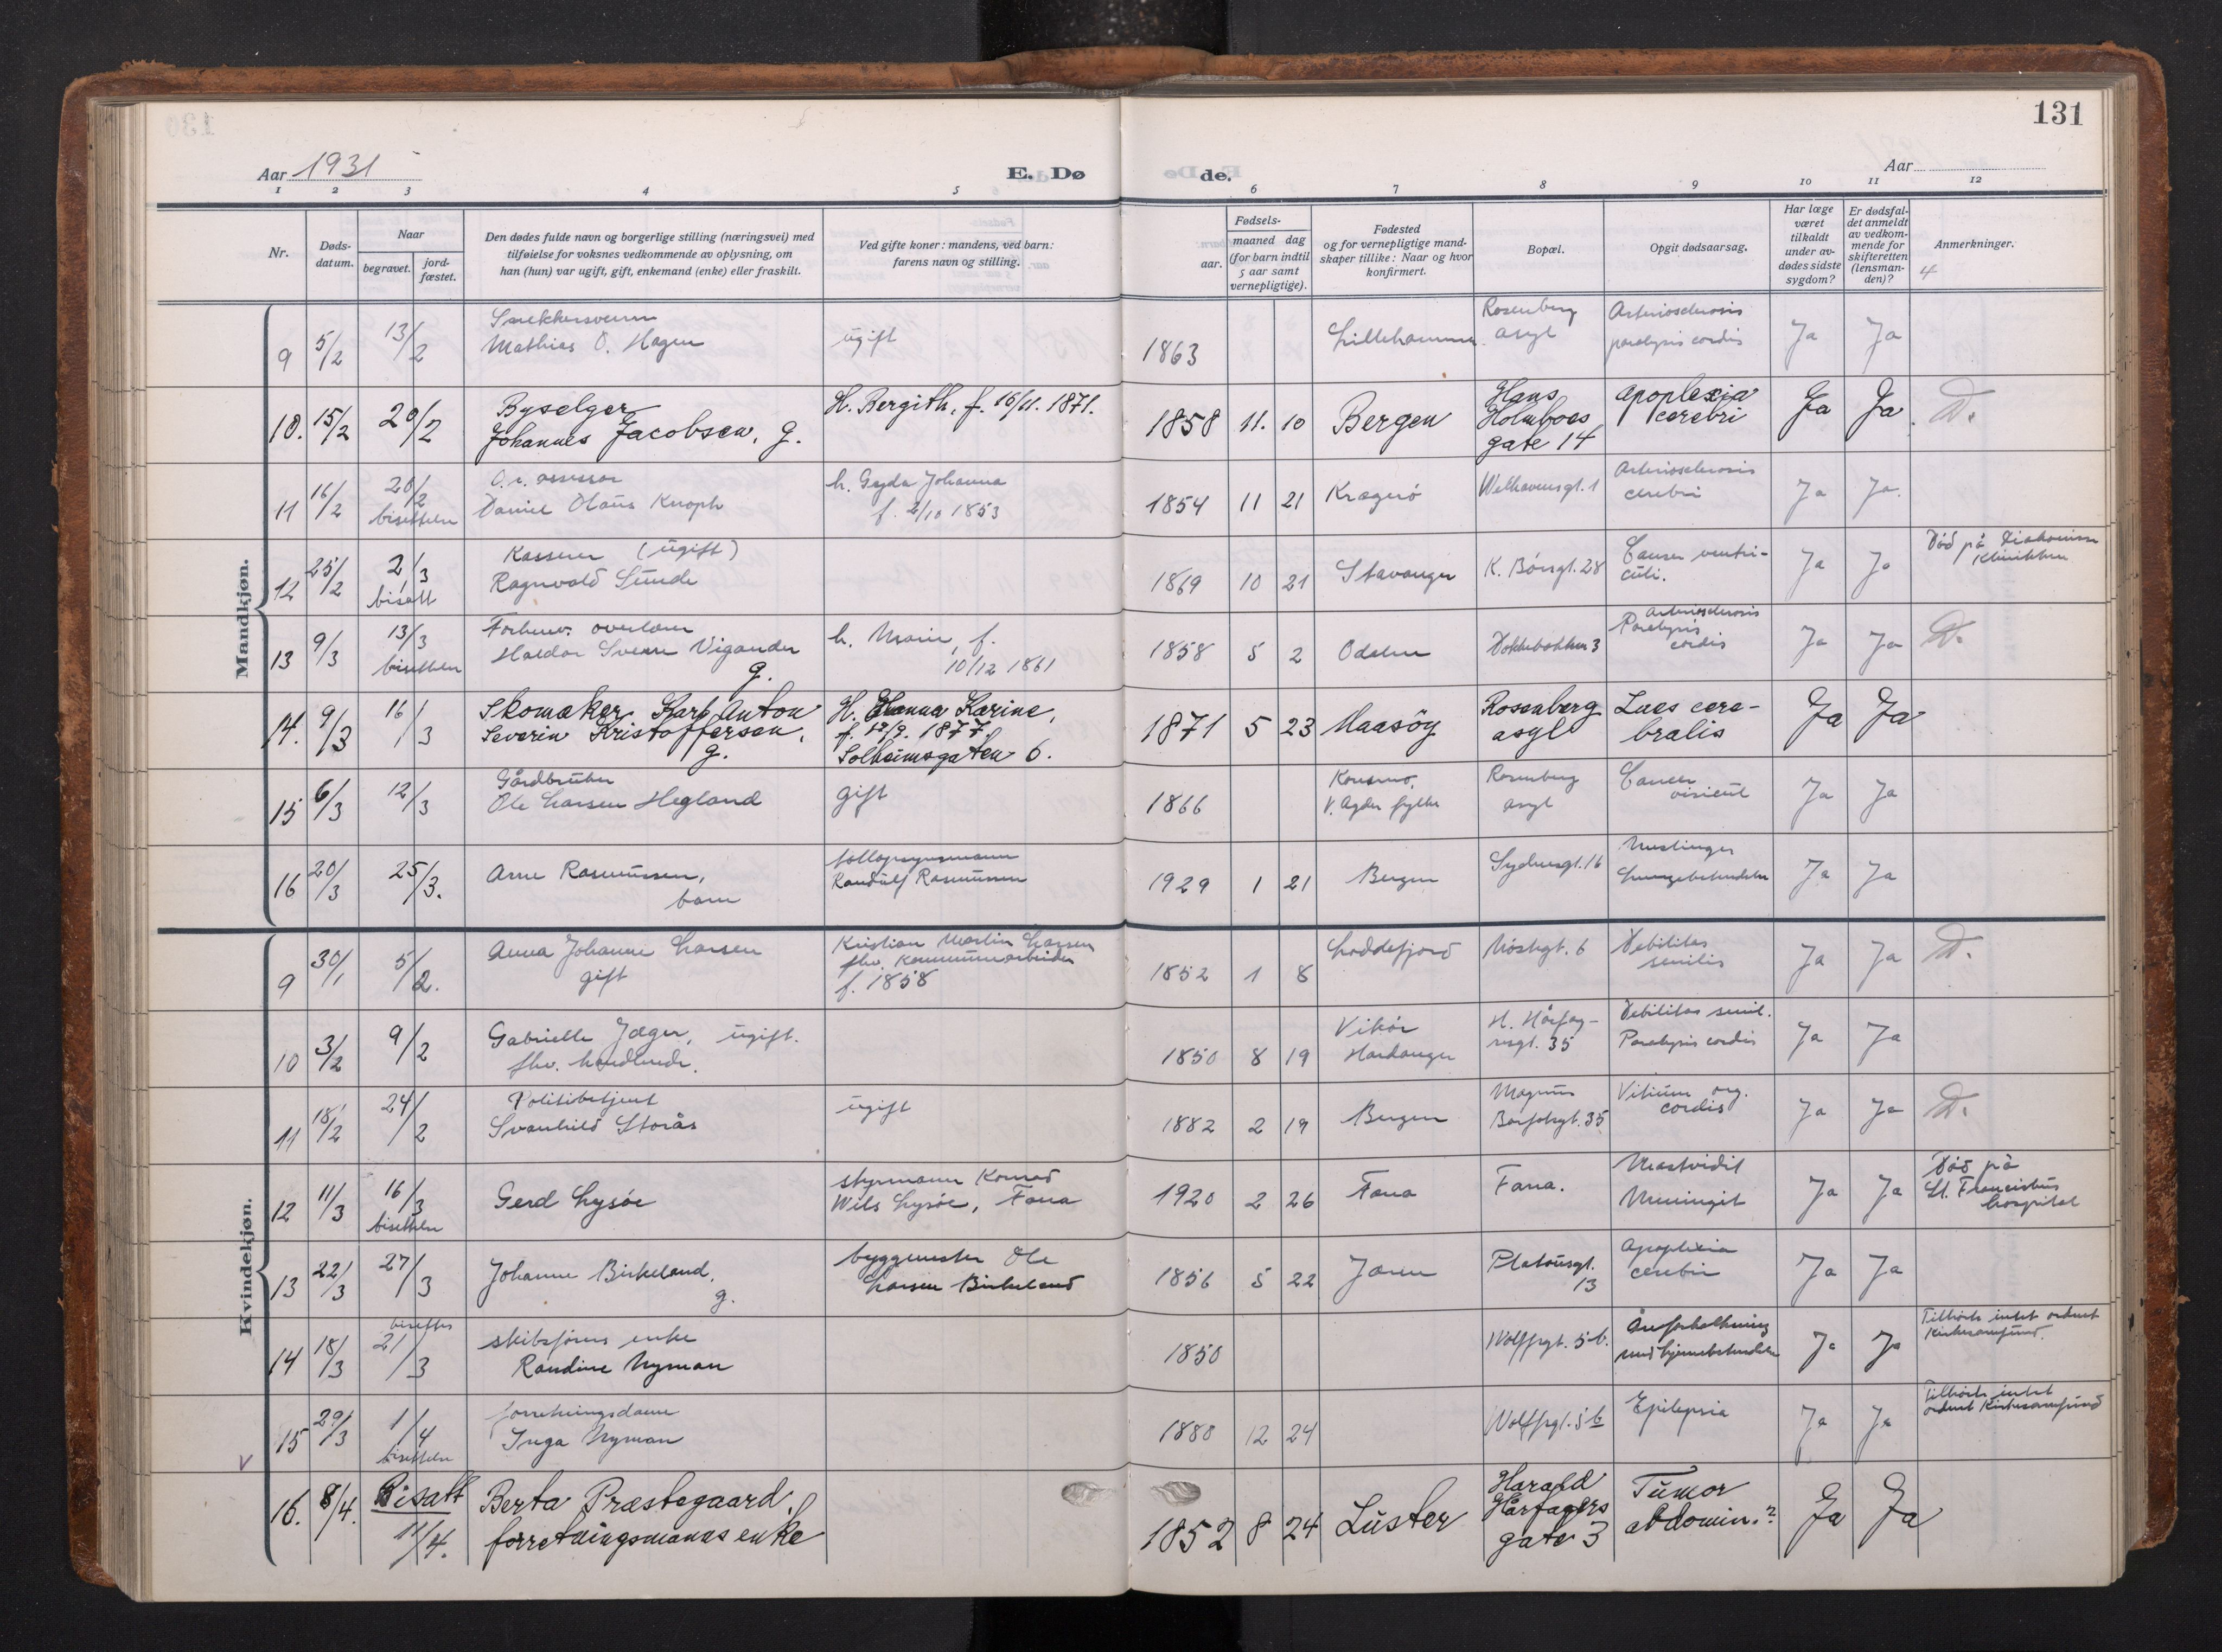 131
Aar 1931
E. Dø
de.
Aar
1 2 3 4 5 6 7 8 9 10 11 12
Nr.
Døds-
datum.
Naar
begravet.
jord-
fæstet.
Den dødes fulde navn og borgerlige stilling (næringsvei) med
tilføielse for voksnes vedkommende av oplysning, om
han (hun) var ugift, gift, enkemand (enke) eller fraskilt.
Ved gifte koner: mandens, ved barn:
farens navn og stilling.
Fødsels-
aar.
maaned dag
(for barn indtil
5 aar samt
vernepligtige).
Fødested
og for vernepligtige mand-
skaper tillike: Naar og hvor
konfirmert.
Bopæl.
Opgit dødsaarsag.
Har læge
været
tilkaldt
under av-
dødes sidste
sygdom?
Er dødsfal-
det anmeldt
av vedkom-
mende for
skifteretten
(lensman-
den)?
Anmerkninger.
4
Mandkjøn.
9 5/2 13/2
Snekkersvenn
Mathias O. Hagen
ugift
1863
Lillehammer
Rosenberg
asyl
Arteriosclerosis
paralysis cordis
Ja Ja
10. 15/2 20/2
Byselger
Johannes Jacobsen, g.
H. Bergith, f. 16/11. 1871.
1858 11. 10 Bergen
Hans
Holmboes
gate 14
Apoplexia
cerebri
Ja Ja. D.
11 16/2 20/2
bisettelse
O.r. assessor
Daniel Olaus Knoph
h. Gyda Johanna
f. 2/10 1853
1854 11 21 Kragerö
Welhavensgt. 1
Arteriosclerosis
cerebri
Ja Ja.
12 25/2 2/3
bisatt
Kasserer (ugift)
Ragnvald Sunde
1869 10 21 Stavanger
K. Börsgt. 28
Cancer ventri-
culi.
Ja Ja
Död på Diakonisse
Klinikken
13 9/3 13/3
bisettelse
Forhenv. overlærer
Haldor Sverre Vigander
g.
h. Marie, f.
10/12 1861
1858 5 2 Odalen
Dokkebakken 3
Arteriosclerosis
Paralysis
cordis
Ja Ja D.
14. 9/3 16/3
Skomaker Karl Anton
Severin Kristoffersen,
g.
H. Hanna Karine,
f. 12/9. 1877.
Solheimsgaten 6.
1871 5 23 Maasöy
Rosenberg
asyl
Lues cere-
bralis
Ja Ja
15 6/3 12/3
Gårdbruker
Ole Larsen Hegland
gift
1866
Konsmo,
V. Agder fylke
Rosenberg
asyl
Cancer
Ja Ja
16 20/3 25/3.
Arne Rasmussen,
barn
Randulf Rasmussen
1929 1 21 Bergen
Sydnesgt. 16
Meslinger
Lungebetendelse
Ja Ja
Kvindekjøn.
9 30/1 5/2.
Anna Johanne Larsen
gift
Kristian Martin Larsen
fhv. kommunearbeider
f. 1858
1852 1 8 Loddefjord
Nöstegt. 6
Debilitas
senilis
Ja Ja D.
10 3/2 9/2
Gabrielle Jæger, ugift.
fhv. handlende.
1850 8 19
Vikör
Hardanger
H. Hårfag-
resgt. 35
Debilitas senil.
Paralysis cordis
Ja Ja
11 18/2 24/2
Politibetjent
Svanhild Storås
ugift
1882 2 19 Bergen
Magnus
Barfotsgt. 35
Vitium org.
cordis
Ja Ja D.
12 11/3 16/3
bisettelse
Gerd Lysöe
styrmann Konrad
Wils Lysöe, Fana
1920 2 26 Fana
Fana.
Mastoidit
Meningit
Ja Ja
Död på
St. Franciskus
hospital
13 22/3 27/3
Johanne Birkeland,
g.
byggmester Ole
Larsen Birkeland
1856 5 22 Jæren
Platousgt.
13
Apoplexia
cerebri
Ja Ja
14 18/3
bisettes
21/3
skibsförers enke
Randine Nyman
1850
Wolffsgt. 5 b.
Åreforkalkning
med hjernebetendelse
Ja Ja
Tilhörte intet ordnet
Kirkesamfund.
V
15 29/3 1/4
bisettelse
forretningsdame
Inga Nyman
1880 12 24
Wolffsgt. 5 b
Epilepsia
Ja Ja
Tilhörte intet
ordnet Kirkesamfund
16. 8/4. Bisatt
11/4.
Berta Præstegaard,
forretningsmanns enke
1852 8 24 Luster
Harald
Hårfagers
gate 3
Tumor
abdomin.?
Ja Ja